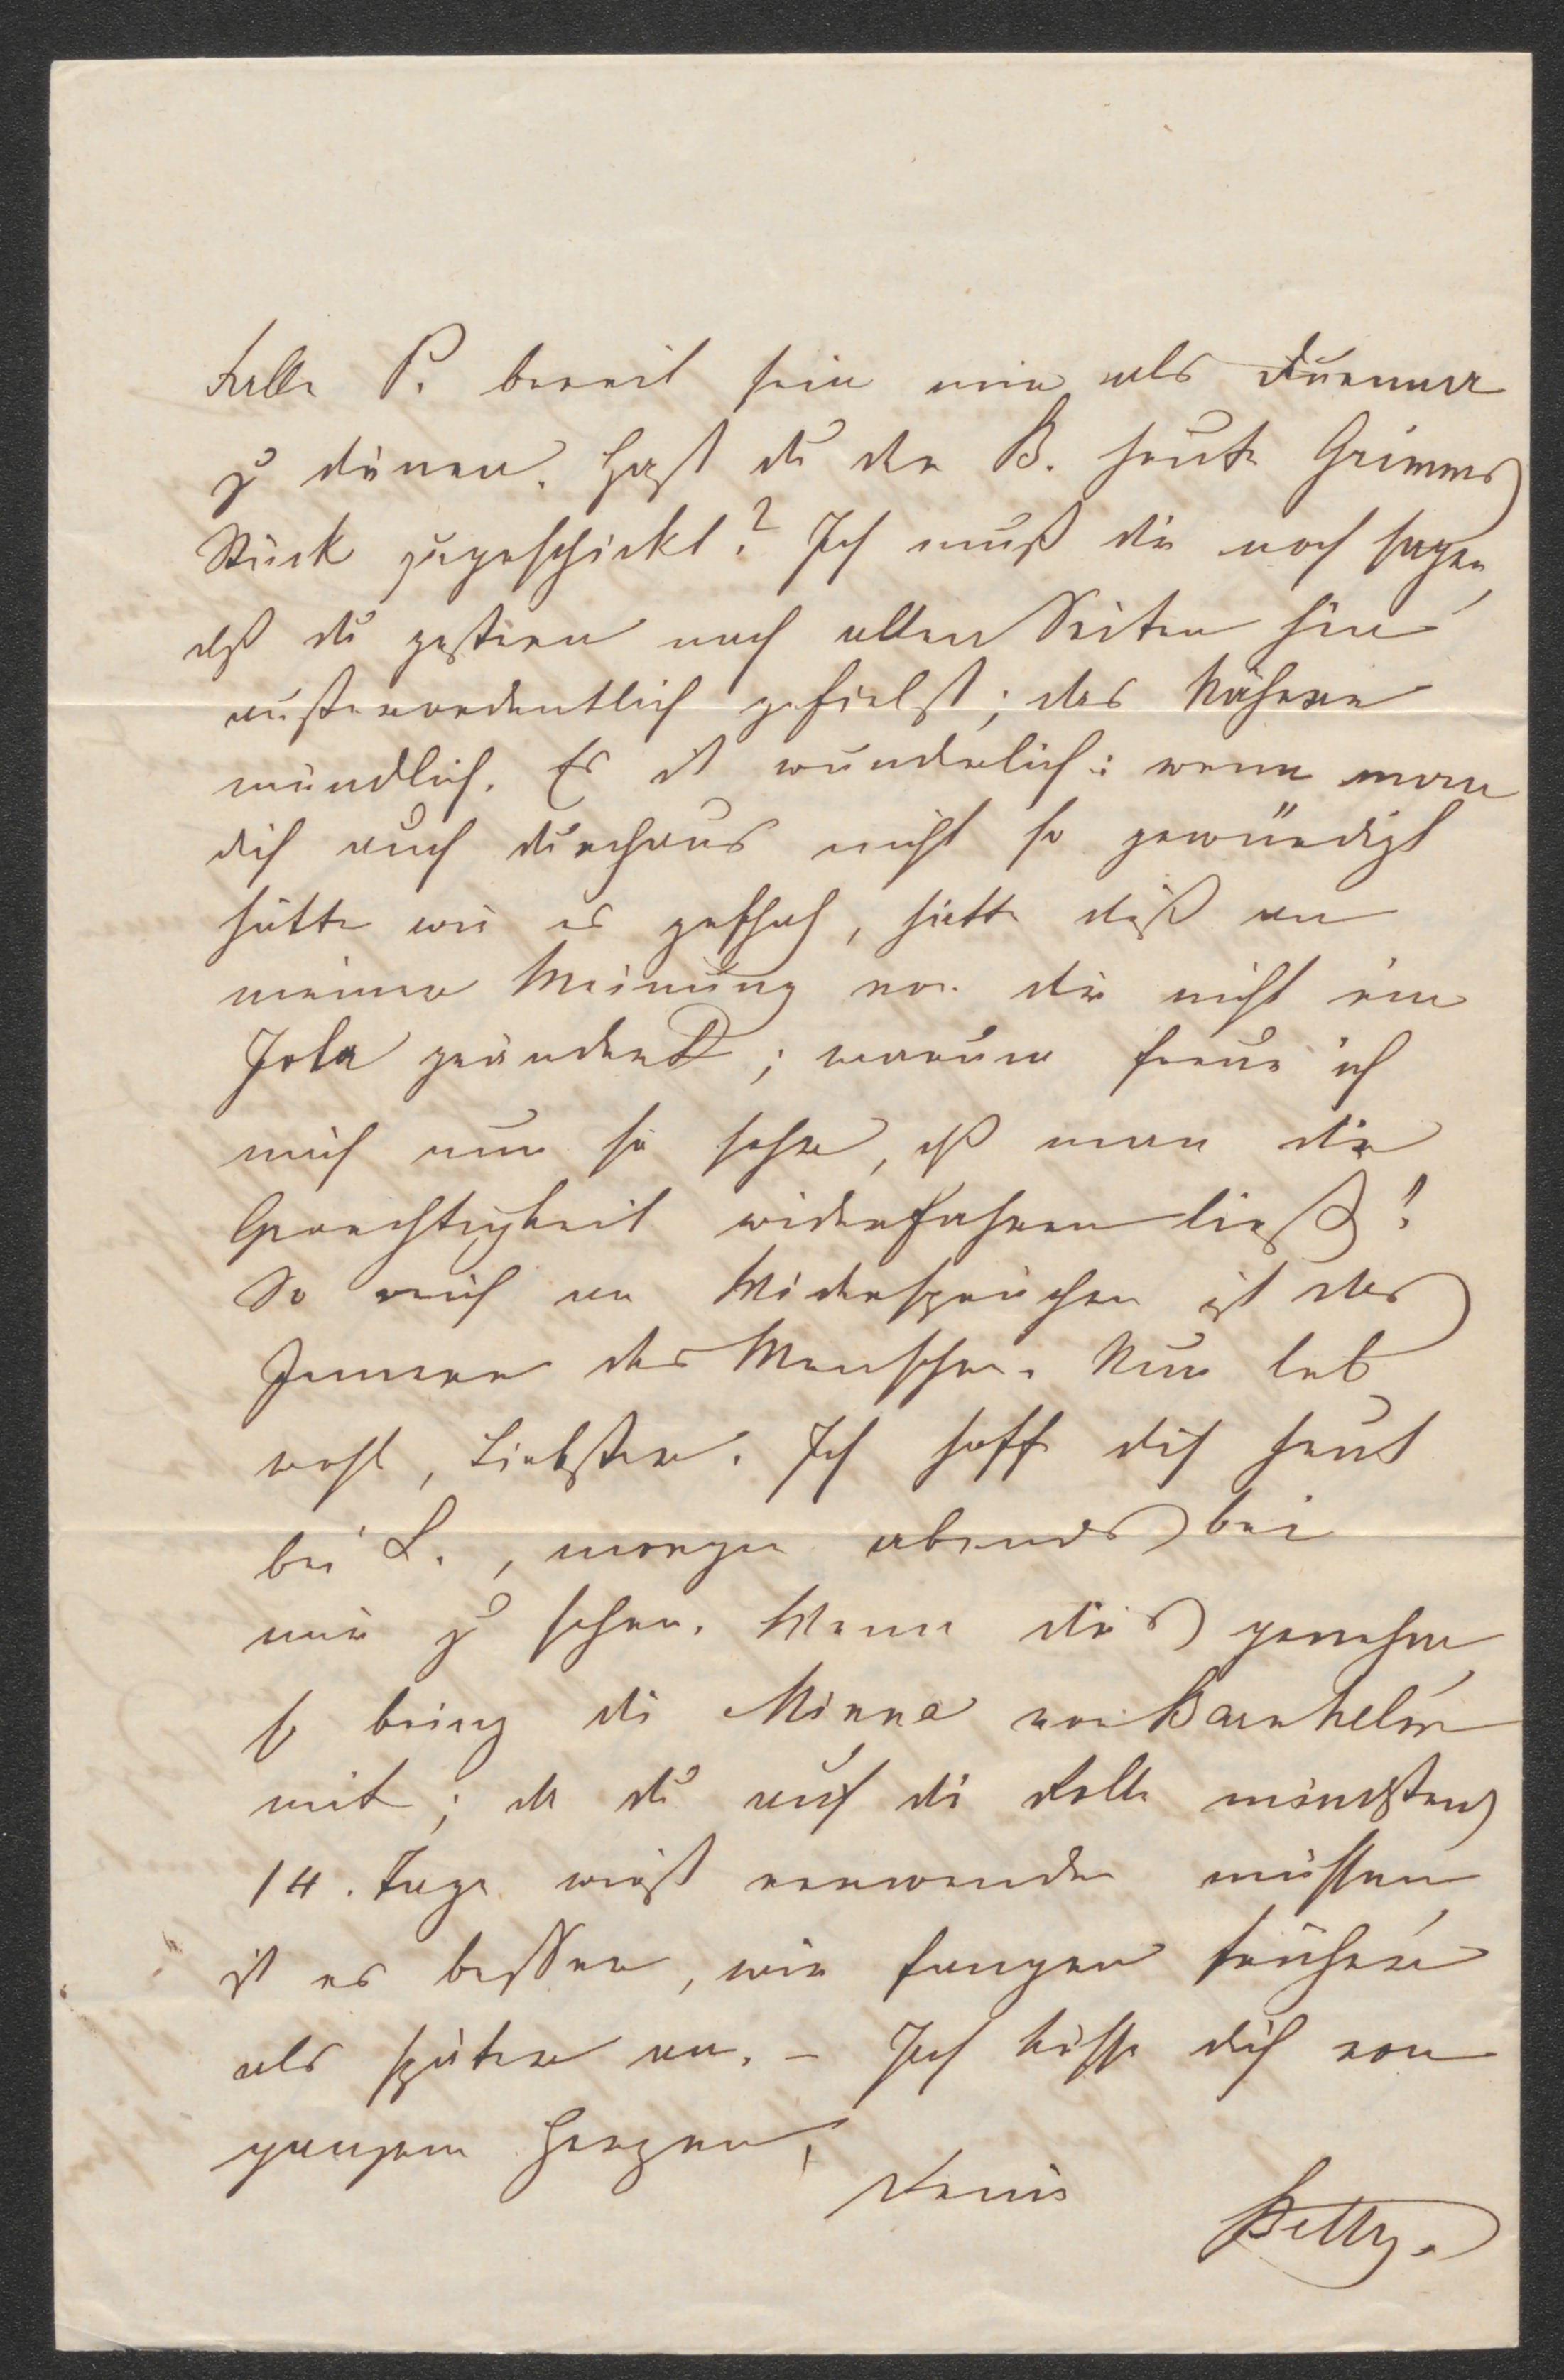 Falle P. bereit sein mir als Duenna
zu dienen. Hast du der B. heute Grimms
Stück zugeschickt? Ich muß dir noch sagen,
dß du gestern nach allen Seiten hin
außerordentlich gefielst; das Nähere
mündlich. Es ist wunderlich: wenn man
dich auch durchaus nicht so gewürdigt
hätte wie es geschah, hätte dieß an
meiner Meinung von dir nicht ein
Jota geändert; warum freue ich
mich nun so sehr, dß man dir
Gerechtigkeit widerfahren ließ!
So reich an Widersprüchen ist das
Innere des Menschen. Nun leb
wohl, Liebster. Ich hoffe dich heut
bei L., morgen abends bei
mir zu sehen. Wenn dirs genehm
so bring die Minna von Barnhelm
mit; da du auf die Rolle mindstens
14. Tage wirst verwenden müssen,
ist es besser, wir fangen früher
als später an. – Ich küsse dich von
ganzem Herzen,
Deine
Betty.